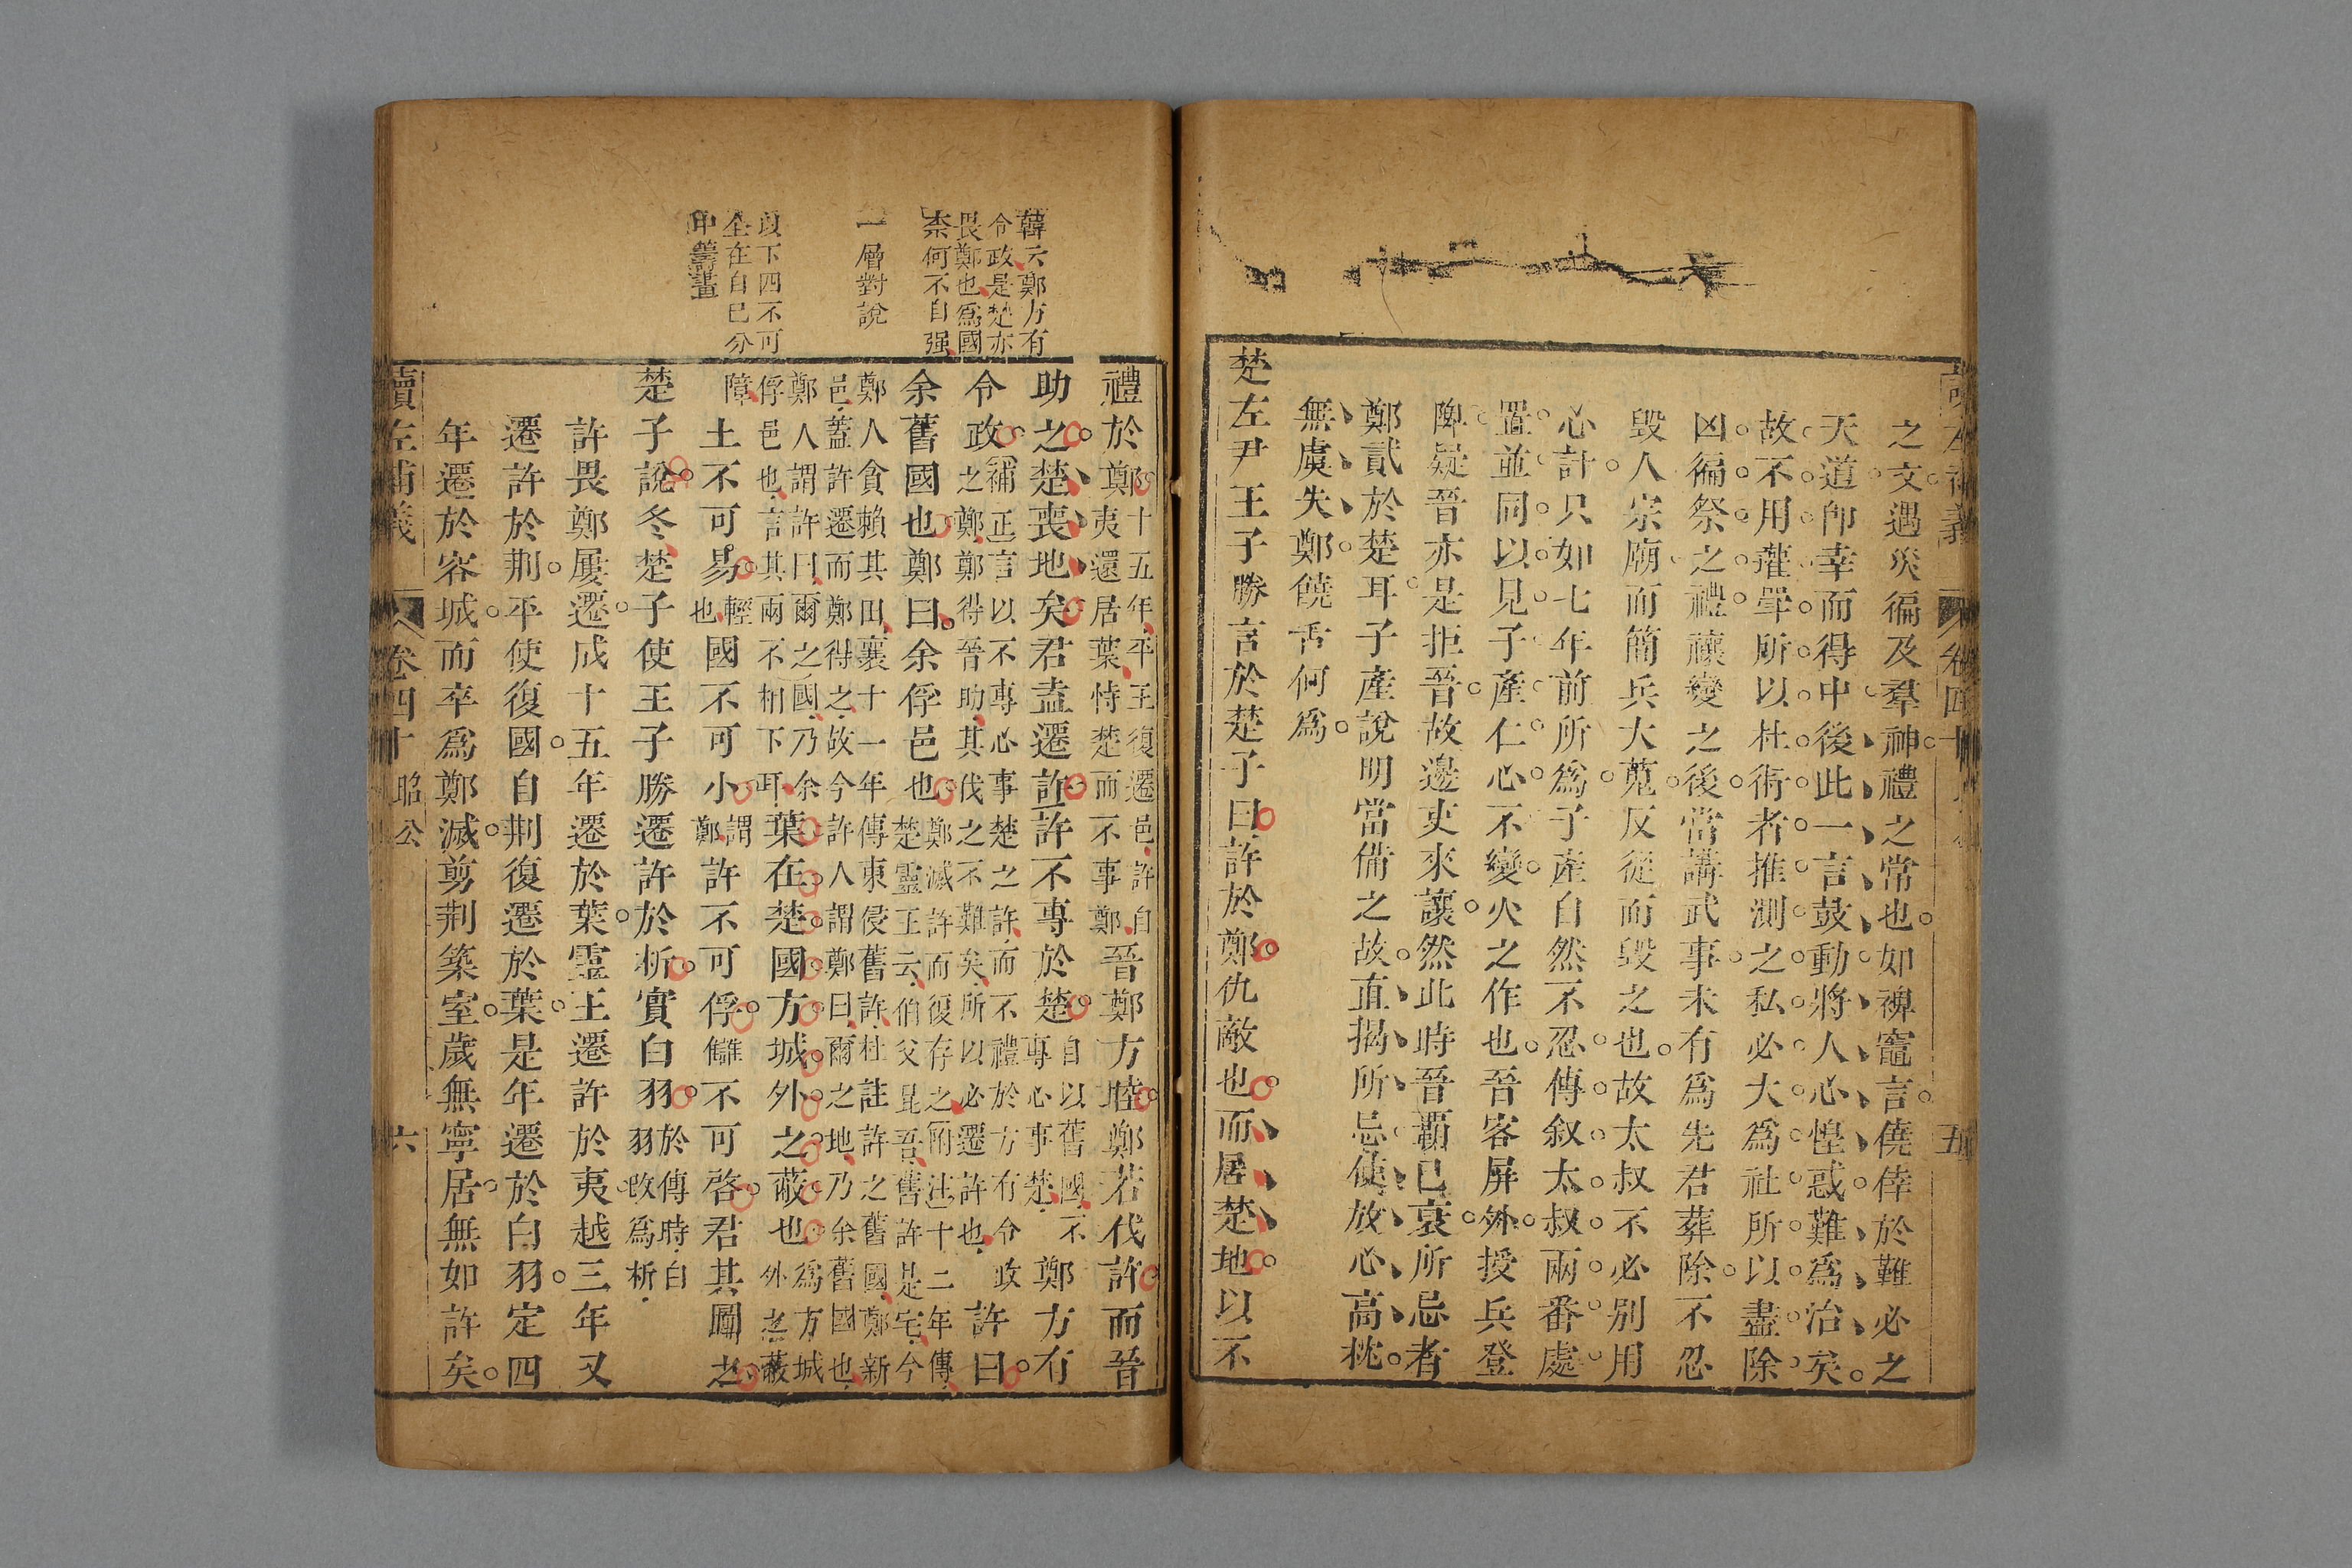 卷四十 五
之文遇災徧及羣神禮之常也如裨竈言僥倖於難必之
天道卽幸而得中後此一言鼓動將人心惶惑難爲治矣
故不用瓘斝所以杜術者推測之私必大爲社所以盡除
凶徧祭之禮禳變之後當講武事未有爲先君葬除不忍
毀人宗廟而簡兵大蒐反從而毀之也故太叔不必別用
心計只如七年前所爲子產自然不忍傳叙太叔兩番處
置並同以見子產仁心不變火之作也晉客屏外授兵登
陴疑晉亦是拒晉故邊吏來讓然此時晉霸已衰所忌者
鄭貳於楚耳子產說明當備之故直揭所忌使放心高挑
無虞失鄭饒舌何爲
楚左尹王子勝言於楚子曰許於鄭仇敵也而居楚地以不
韓云鄭方有
令政是楚亦
畏鄭也爲國
柰何不自强
一層對說
以下四不可
全在自己分
中籌畫
禮於鄭十五年平王復遷邑許自夷還居葉恃楚而不事鄭晉鄭方睦鄭若伐許而晉
助之楚喪地矣君盍遷許許不專於楚自以舊國不專心事楚鄭方有
令政補正言以不專心事楚之許而不禮於方有令政之鄭鄭得晉助其伐之不難矣所以必遷許也許曰
余舊國也鄭曰余俘邑也鄭滅許而復存之附注十二年傳楚靈王云伯父昆吾舊許是宅今
鄭人貪賴其田襄十一年傳東侵舊許杜註許之舊國鄭新邑蓋許遷而鄭得之故今許人謂鄭曰爾之地乃余舊國也
鄭人謂許曰爾之國乃余俘邑也言其兩不相下耳葉在楚國方城外之蔽也爲方城外之蔽
障土不可易輕也國不可小謂鄭許不可俘讎不可啓君其圖之
楚子說冬楚子使王子勝遷許於析實白羽於傳時白羽改爲析
許畏鄭屢遷成十五年遷於葉靈王遷許於夷越三年又
遷許於荆平使復國自荆復遷於葉是年遷於白羽定四
年遷於容城而卒爲鄭滅剪荆築室歲無寧居無如許矣
讀左補義 卷四十 昭公 六